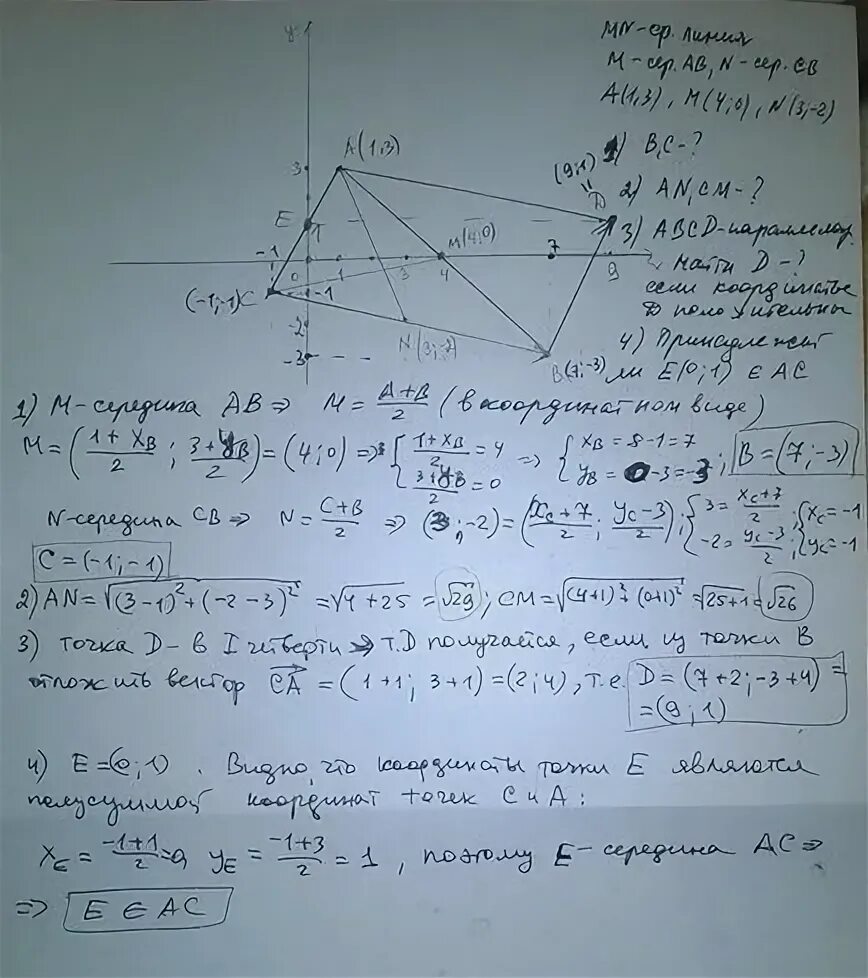 MN-ср. линия
M-сер. AB, N-сер. CB
A(1,3), M(4;0), N(3;-2)
1) B,C-?
2) AN, CM-?
3) ABCD-параллелогр.
найти D-?
если координаты
D положительны
4) Принадлежит
ли E(0;1) ∈ AC
y
1
3
A(1,3)
(9;1)
"
D
E
1
M(4;0)
-1
0
1
3
4
7
9
(-1;-1)C
-1
-2
N(3;-2)
-3
B(7;-3)
1) M-середина AB ⇒ M = (A+B)/2 (в координатном виде)
M = ((1+x_B)/2 ; (3+y_B)/2) = (4;0) ⇒ { (1+x_B)/2 = 4 ; (3+y_B)/2 = 0 ⇒ { x_B = 8-1=7 ; y_B = 0-3=-3 ; B = (7;-3)
N-середина CB ⇒ N = (C+B)/2 ⇒ (3;-2) = ((x_C+7)/2 ; (y_C-3)/2) ; { 3 = (x_C+7)/2 ; -2 = (y_C-3)/2 ; { x_C = -1 ; y_C = -1
C = (-1;-1)
2) AN = √((3-1)²+(-2-3)²) = √4+25 = √29 ; CM = √((4+1)²+(0+1)²) = √25+1 = √26
3) точка D-в I четверти ⇒ т.D получается, если из точки B
отложить вектор CA = (1+1; 3+1) = (2;4), т.е. D = (7+2; -3+4) =
= (9;1)
4) E = (0;1). Видно, что координаты точки E являются
полусуммой координат точек C и A:
x_E = (-1+1)/2 = 0, y_E = (-1+3)/2 = 1, поэтому E-середина AC ⇒
⇒ E ∈ AC